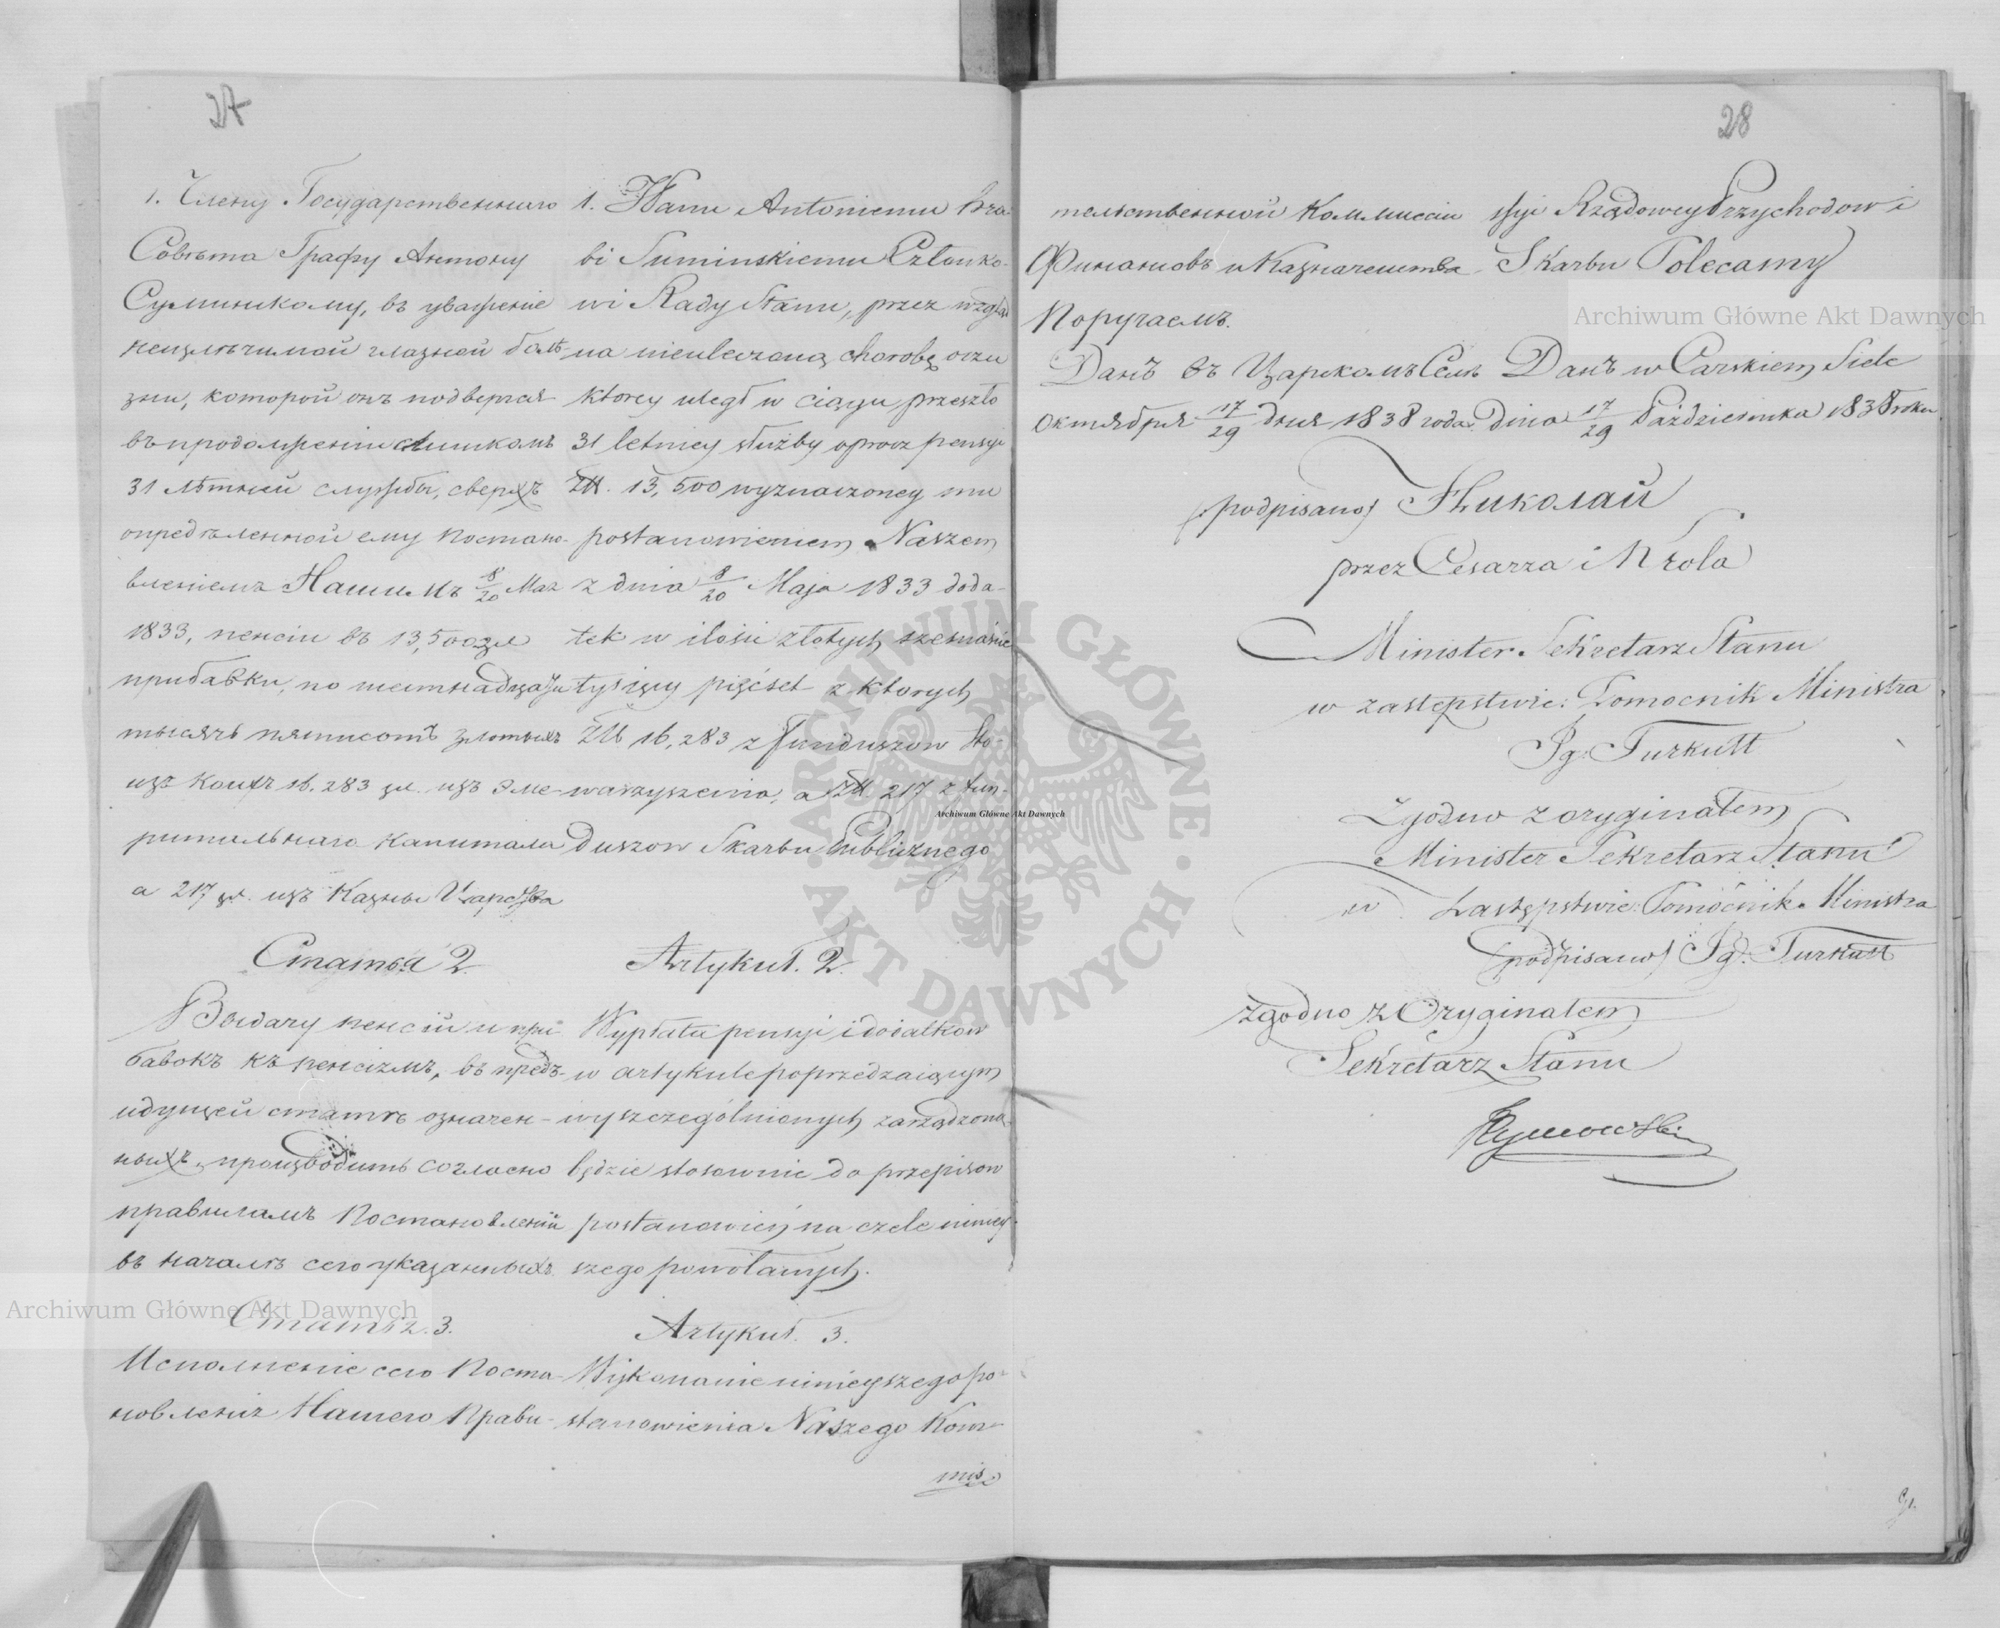 27
1. Члену Государственнаго
Совѣта Графу Антону
Суминскому, въ уваженіе
неизлѣчимой глазной болѣ-
зни, которой онъ подвергся
въ продолженіи слишкомъ
31 лѣтней службы, сверхъ
опредѣленной ему Постано-
вленіемъ Нашимъ 8/20 Мая
1833, пенсіи въ 13,500 зл
прибавки, по шестнадцати
тысячъ пятисотъ злотыхъ
изъ коихъ 16,283 зл. изъ Эме-
ритальнаго капитала
а 217 зл. изъ Казны Царства
Статья 2
Выдачу пенсій и при-
бавокъ къ пенсіямъ, въ предъ-
идущей статьѣ означен-
ныхъ, производить согласно
правиламъ Постановленій
въ началѣ сего указанныхъ.
Статья 3.
Исполненіе сего Поста-
новленія Нашего Прави-
1. Panu Antoniemu Hra-
bi Suminskiemu Członko-
wi Rady Stanu, przez wzgląd
na nieuleczoną chorobę oczu
ktorey uległ w ciągu przeszło
31 letniey służby oprocz pensyi
Zł. 13,500 wyznaczoney mu
postanowieniem Naszem
z dnia 8/20 Maja 1833 doda-
tek w ilości złotych szesnaście
tysięcy pięćset z ktorych
Zł 16,283 z funduszow Sto-
warzyszenia, a Zł. 217 z fun-
duszow Skarbu Publicznego
Artykuł. 2.
Wypłata pensyi i dodatkow
w artykule poprzedzaiącym
wyszczególnionych zarządzona
będzie stosownie do przepisow
postanowień na czele niniey-
szego powołanych.
Artykuł. 3.
Wykonanie ninieyszego po-
stanowienia Naszego Kom-
mis
28
тельственной Коммиссіи
Финансовъ и Казначейства
Поручаемъ.
Данъ въ Царскомъ Селѣ
Октября 17/29 дня 1838 года.
ssyi Rządowey Przychodow i
Skarbu Polecamy
Danъ w Carskiem Siele
dnia 17/29 Października 1838 roku
(podpisano) Николай
przez Cesarza i Krola
Minister Sekretarz Stanu
w zastępstwie: Pomocnik Ministra
Ig: Turkułł
Zgodno z oryginałem
Minister Sekretarz Stanu
w Zastępstwie: Pomocnik Ministra
(podpisano) Ig. Turkułł
Zgodno z Oryginałem
Sekretarz Stanu
Tymowski
Archiwum Główne Akt Dawnych
Archiwum Główne Akt Dawnych
Archiwum Główne Akt Dawnych
ARCHIWUM GŁÓWNE AKT DAWNYCH